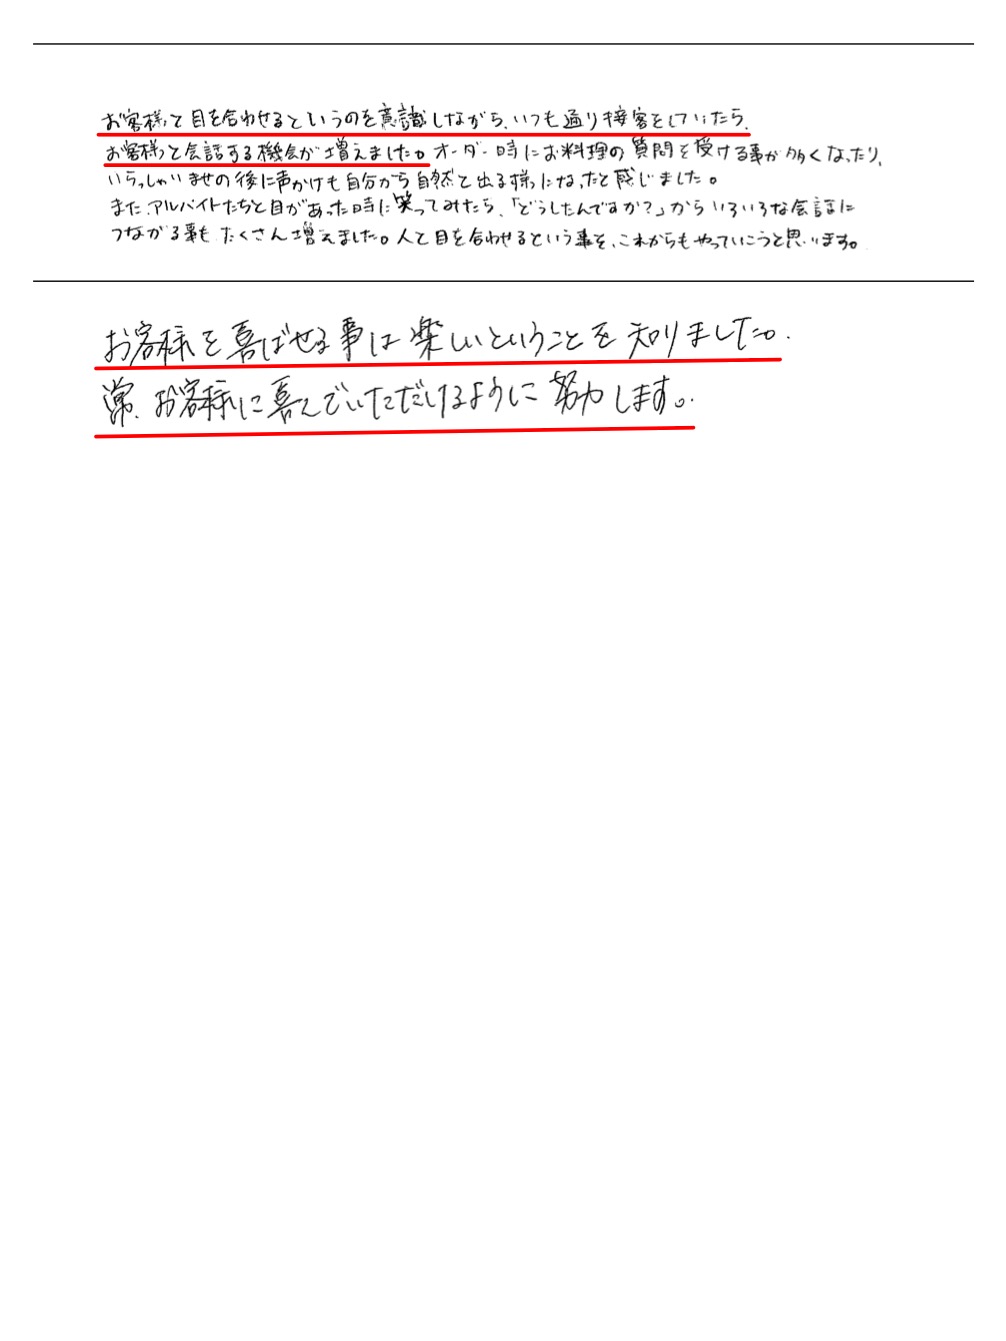 お客様と目を合わせるというのを意識しながら、いつも通り接客をしていたら、
お客様と会話する機会が増えました。オーダー時にお料理の質問を受ける事が多くなったり、
いらっしゃいませの後に声かけも自分から自然と出る様になったと感じました。
また、アルバイトたちと目があった時に笑ってみたら、「どうしたんですか?」からいろいろな会話に
つながる事もたくさん増えました。人と目を合わせるという事を、これからもやっていこうと思います。
お客様を喜ばせる事は楽しいということを知りました。
常、お客様に喜んでいただけるように努力します。